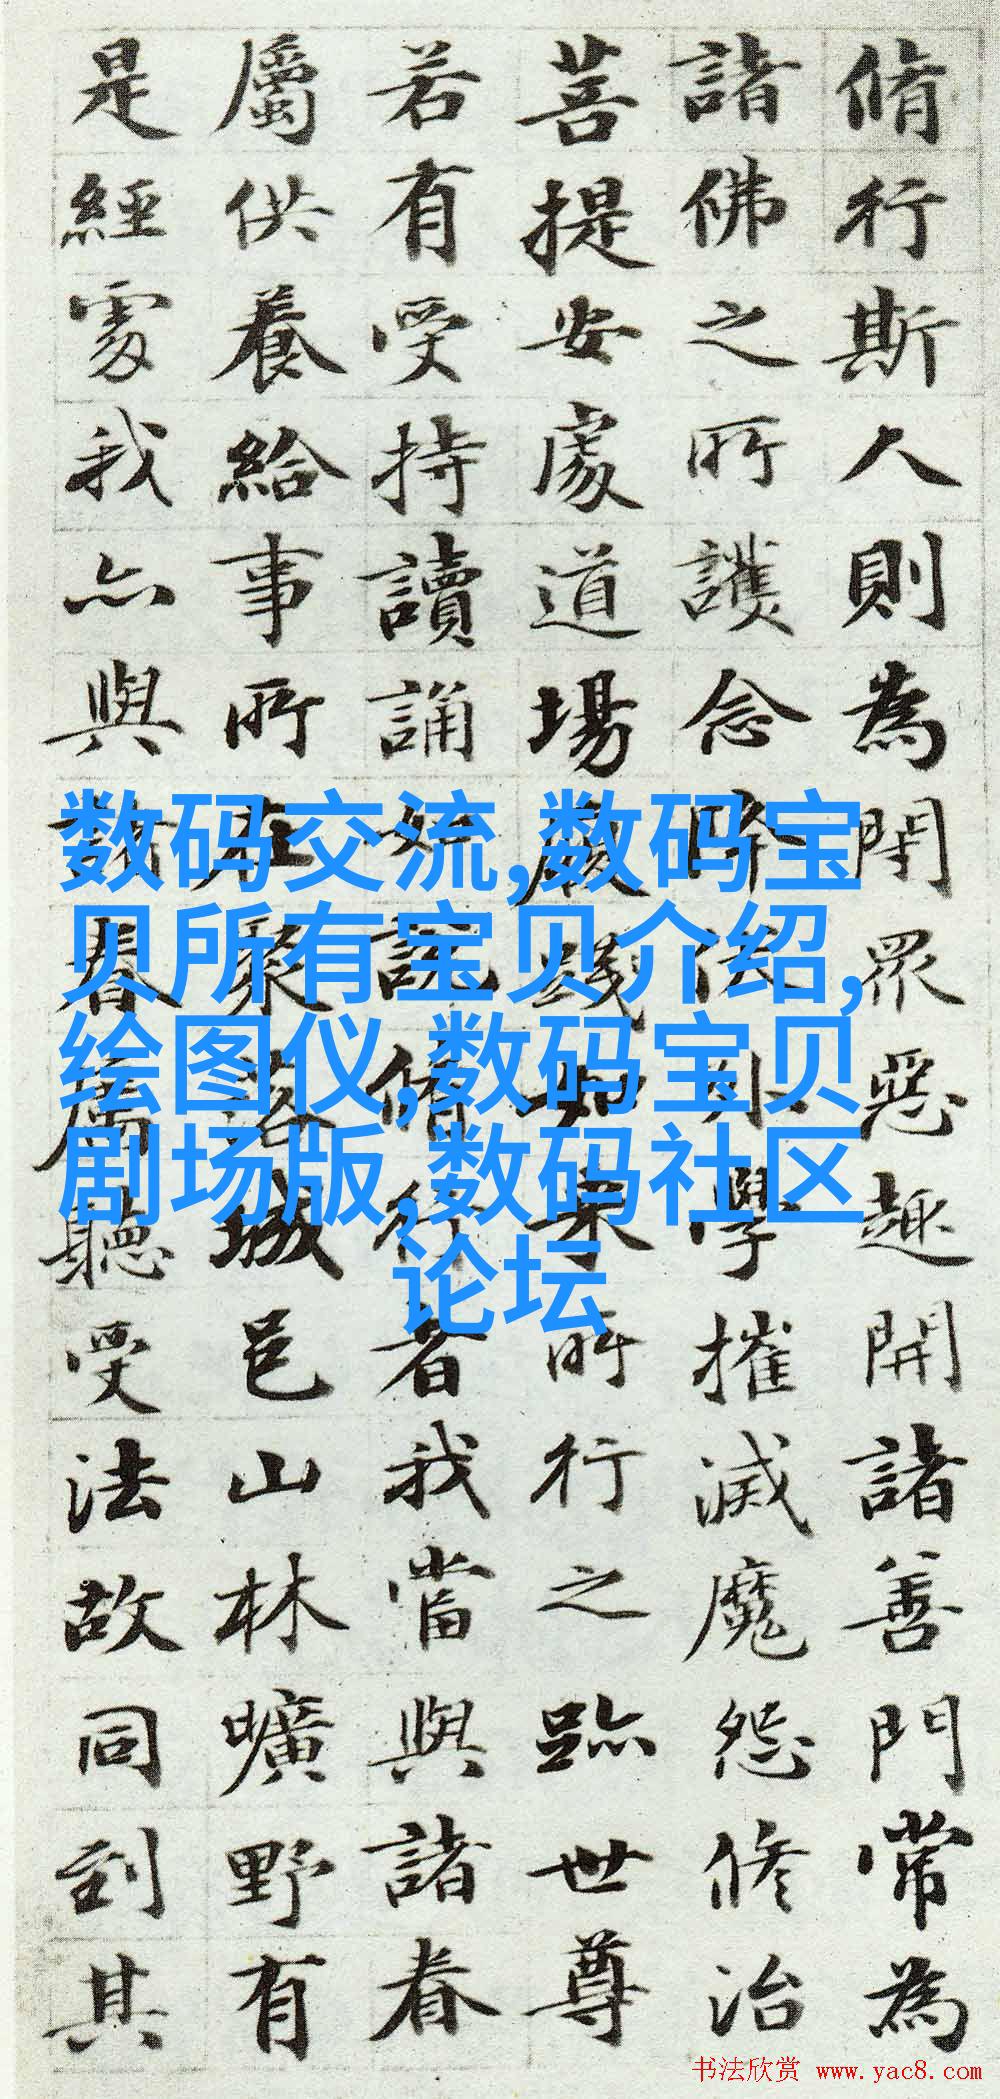 脩行斯人則為閇眾惡趣開諸善門常為
諸佛之所護念降伏外學摧滅魔怨修治
菩提安處道場履踐如來所行之跡世尊
若有受持讀誦如說脩行者我當與諸眷
屬供養給事所在聚落城邑山林曠野有
是經處我亦與諸眷屬聽受法故同到其
数码交流,数码宝
贝所有宝贝介绍,
绘图仪,数码宝贝
剧场版,数码社区
论坛
书法欣赏 www.yac8.com